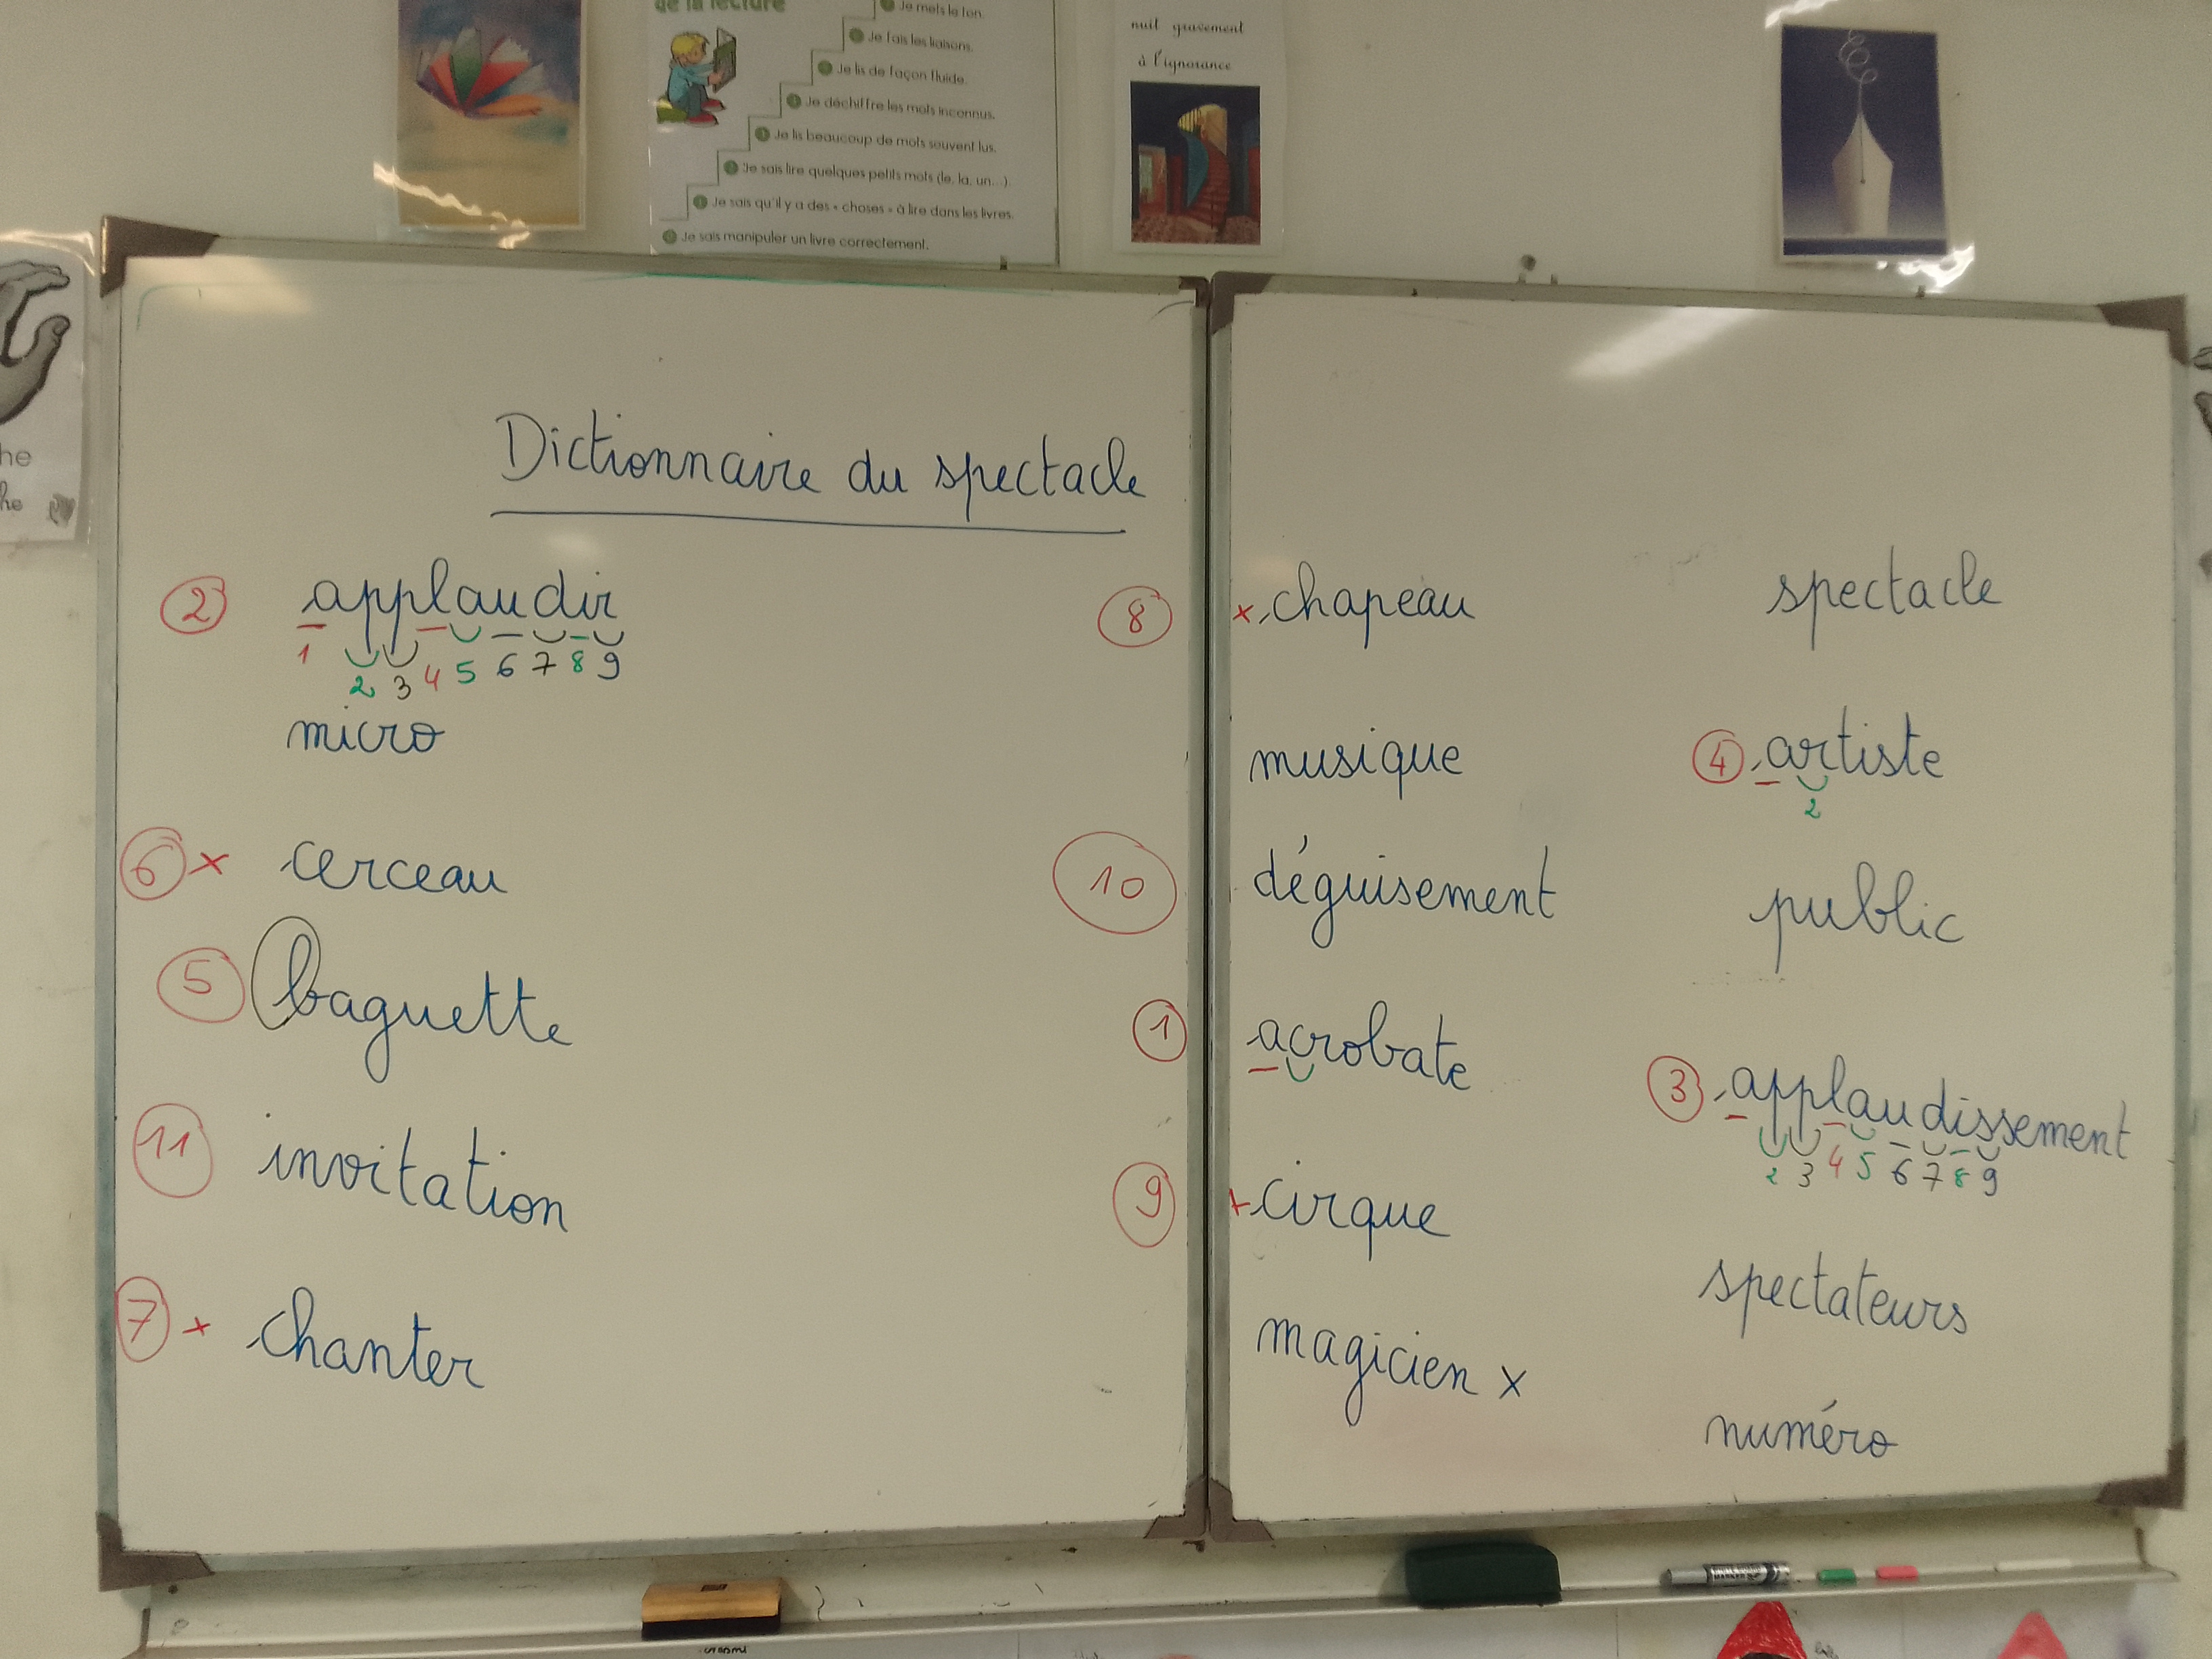 de la lecture
Je mets le ton.
Je fais les liaisons.
Je lis de façon fluide.
Je déchiffre les mots inconnus.
Je lis beaucoup de mots souvent lus.
Je sais lire quelques petits mots (le, la, un...).
Je sais qu'il y a des « choses » à lire dans les livres.
Je sais manipuler un livre correctement.
nuit gravement
à l'ignorance
he
he
Dictionnaire du spectacle
2 applaudir
1 2 3 4 5 6 7 8 9
micro
6 x cerceau
5 baguette
11 invitation
7 x chanter
8 x chapeau
musique
10 déguisement
1 acrobate
9 x cirque
magicien x
spectacle
4 artiste
2
public
3 applaudissement
2 3 4 5 6 7 8 9
spectateurs
numéro